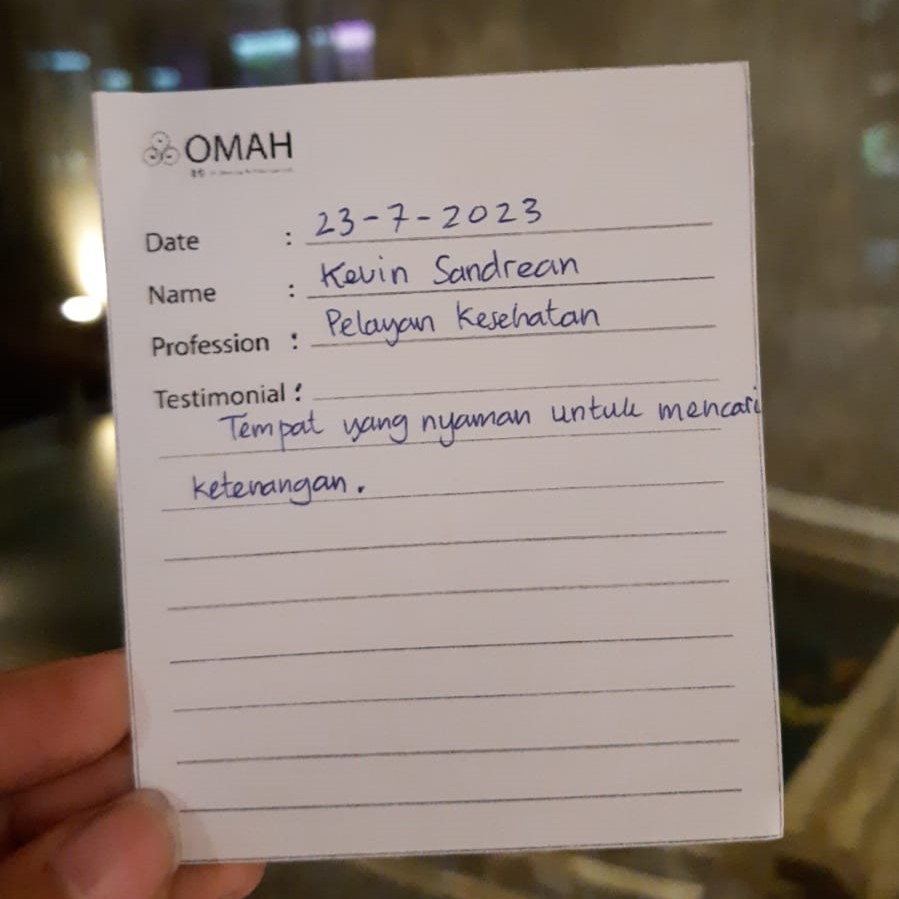 OMAH
Date : 23-7-2023
Name : Kevin Sandrean
Profession : Pelayan Kesehatan
Testimonial :
Tempat yang nyaman untuk mencari
ketenangan.